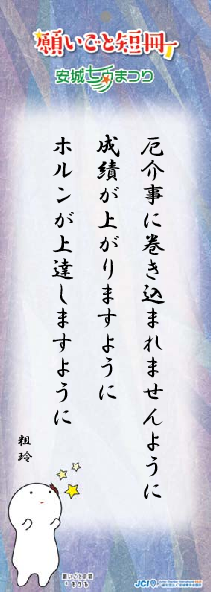 願いごと短冊
安城七夕まつり
厄介事に巻き込まれませんように
成績が上がりますように
ホルンが上達しますように
粗玲
JCI